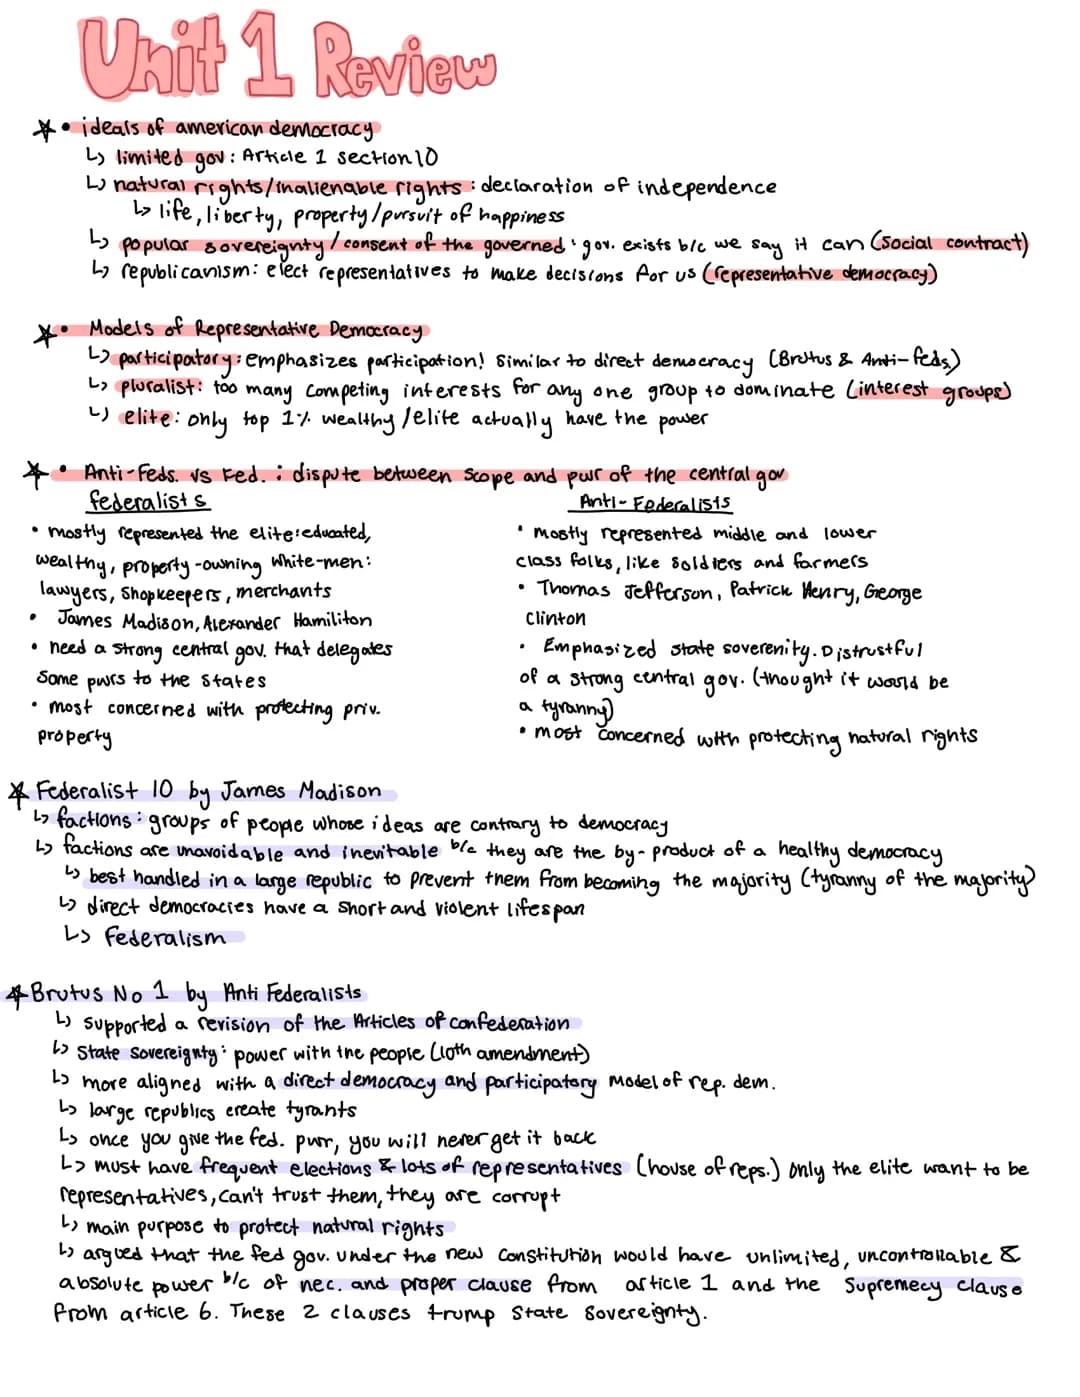 Unit 1 Review
• ideals of american democracy
↳ limited gov: Article 1 section 10
↳ natural rights/inalienable rights: declaration of independence
↳ life, liberty, property/pursuit of happiness
↳ popular sovereignty/consent of the governed: gov. exists b/c we say it can (social contract)
↳ republicanism: elect representatives to make decisions for us (representative democracy)
• Models of Representative Democracy
↳ participatory: emphasizes participation! Similar to direct democracy (Brutus & Anti-feds)
↳ pluralist: too many competing interests for any one group to dominate (interest groups)
↳ elite: only top 1% wealthy/elite actually have the power
• Anti-Feds. vs Fed.: dispute between scope and pwr of the central gov
federalists
• mostly represented the elite: educated,
wealthy, property-owning white-men:
lawyers, shopkeepers, merchants
• James Madison, Alexander Hamiliton
• need a strong central gov. that delegates
some pwrs to the states
• most concerned with protecting priv.
property
Anti-Federalists
• mostly represented middle and lower
class folks, like soldiers and farmers
• Thomas Jefferson, Patrick Henry, George
Clinton
• Emphasized state soverenity. Distrustful
of a strong central gov. (thought it would be
a tyranny)
• most concerned with protecting natural rights
Federalist 10 by James Madison
↳ factions: groups of people whose ideas are contrary to democracy
↳ factions are unavoidable and inevitable b/c they are the by-product of a healthy democracy
↳ best handled in a large republic to prevent them from becoming the majority (tyranny of the majority)
↳ direct democracies have a short and violent lifespan
↳ Federalism
Brutus No 1 by Anti Federalists
↳ supported a revision of the Articles of confederation
↳ State sovereignty: power with the people (10th amendment)
↳ more aligned with a direct democracy and participatory model of rep. dem.
↳ large republics create tyrants
↳ once you give the fed. pwr, you will never get it back
↳ must have frequent elections & lots of representatives (house of reps.) only the elite want to be
representatives, can't trust them, they are corrupt
↳ main purpose to protect natural rights
↳ argued that the fed gov. under the new constitution would have unlimited, uncontrollable &
absolute power b/c of nec. and proper clause from article 1 and the Supremecy clause
from article 6. These 2 clauses trump State Sovereignty.